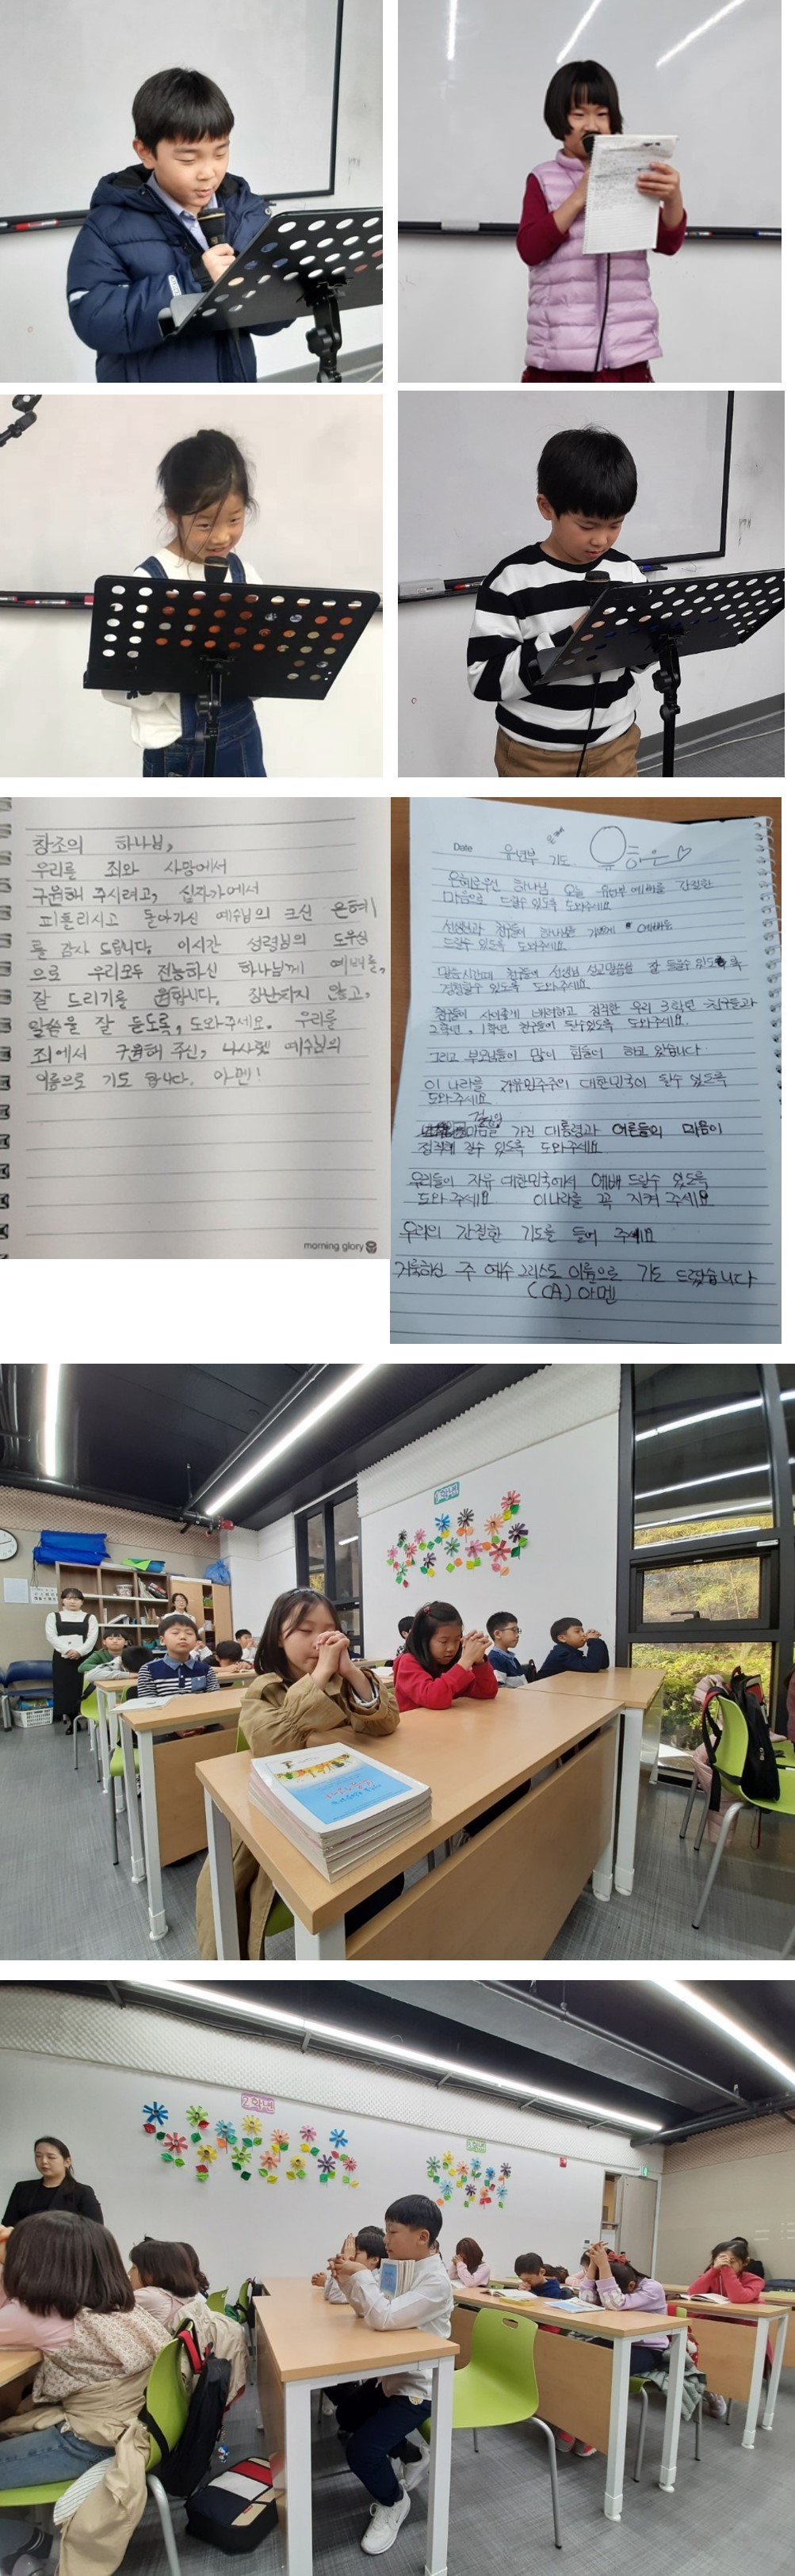 창조의 하나님,
우리를 죄와 사망에서
구원해 주시려고, 십자가에서
피흘리시고 돌아가신 예수님의 크신 은혜
를 감사 드립니다. 이시간 성령님의 도우심
으로 우리모두 전능하신 하나님께 예배를,
잘 드리기를 원합니다. 장난치지 않고,
말씀을 잘 듣도록, 도와주세요. 우리를
죄에서 구원해 주신, 나사렛 예수님의
이름으로 기도 합니다. 아멘!
morning glory
Date 유년부 기도
은혜로우신 하나님 오늘 유년부 예배를 간절한
마음으로 드릴수 있도록 도와주세요
선생님과 친구들이 하나님을 예배를
드릴수 있도록 도와주세요.
말씀시간때 친구들이 선생님 설교말씀을 잘 들을수 있도록
경청할수 있도록 도와주세요.
친구들 사이좋게 배려하고 우리 3학년 친구들과
2학년, 1학년 친구들이 될수있도록 도와주세요.
그리고 부모님들이 많이 힘들어 하고 있습니다.
이 나라를 자유민주주의 대한민국이 될수 있도록
도와주세요
마음을 가진 대통령과 어른들의 마음이
정직해 질수 있도록 도와주세요
우리들의 자유 대한민국에서 예배 드릴수 있도록
도와주세요 이나라를 꼭 지켜 주세요
우리의 간절한 기도를 들어 주세요
거룩하신 주 예수 그리스도 이름으로 기도 드렸습니다
아멘
2학년